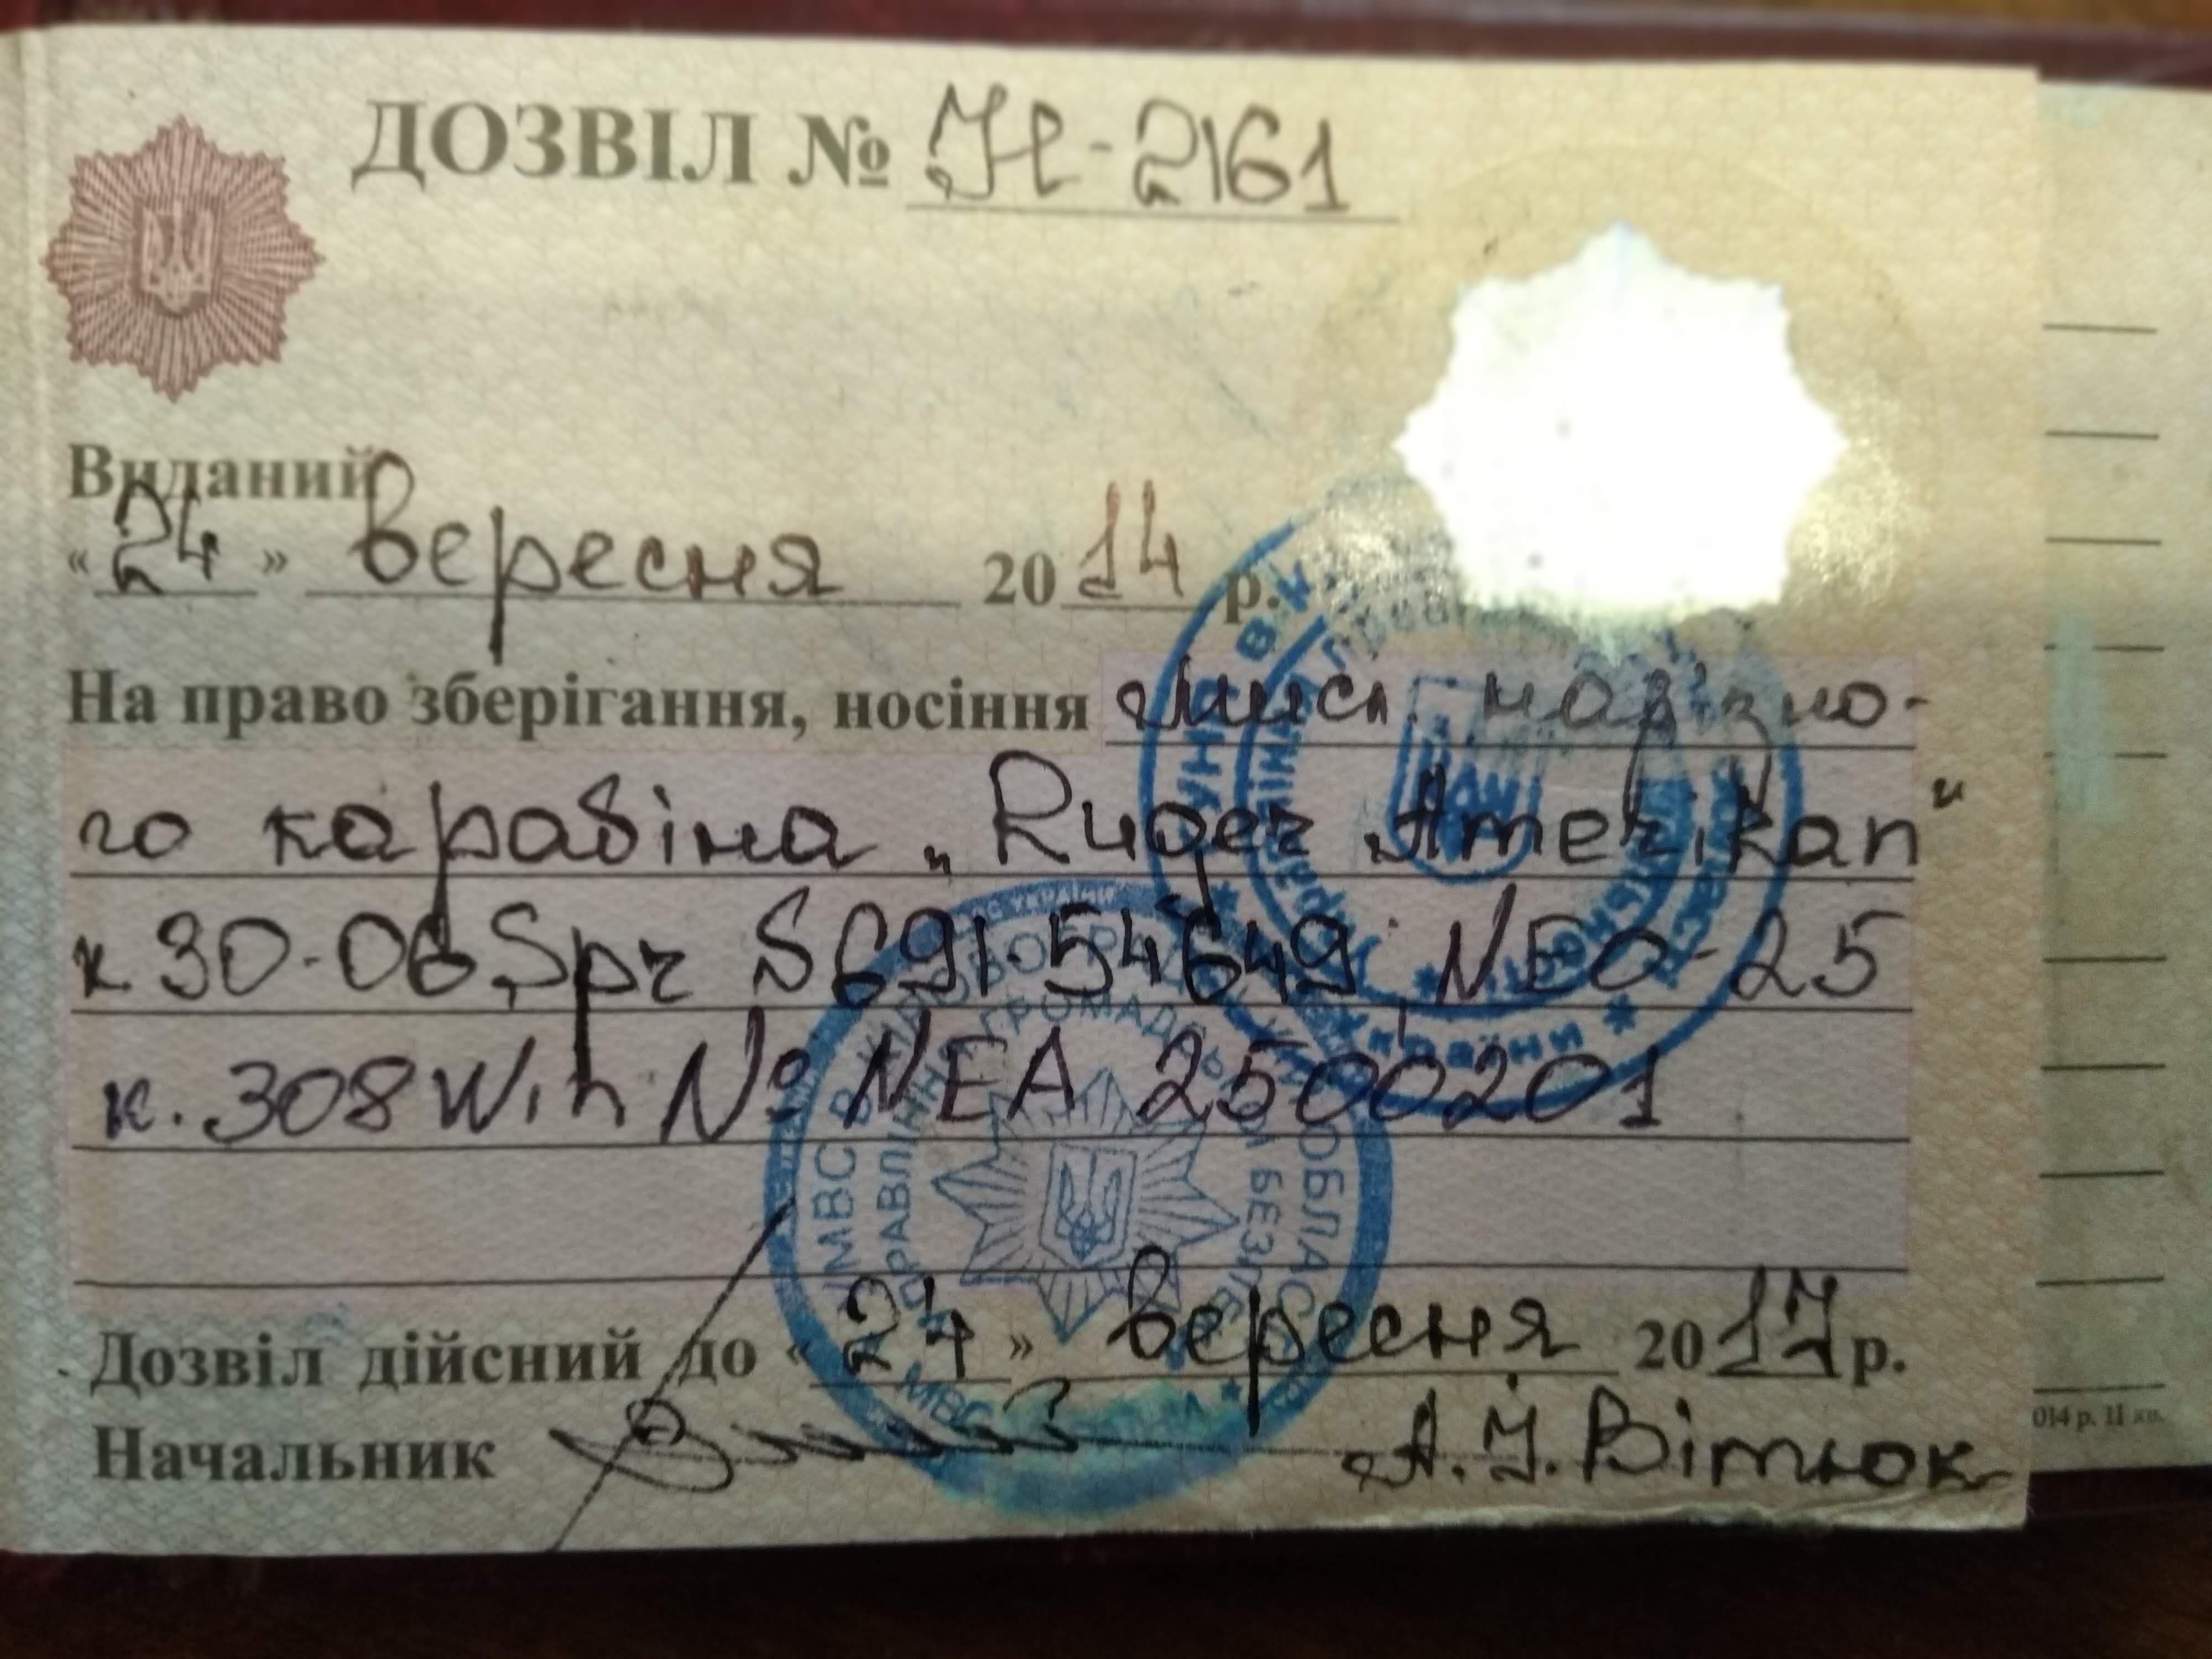 ДОЗВІЛ № Н-2161
Виданий
« 24 » вересня 2014 р.
На право зберігання, носіння мисл. нарізно-
го карабіна „Ruger Amerikan"
к. 30-06 Spr S691-54649, NEO-25
к. 308 Win № NEA 2500201
Дозвіл дійсний до « 24 » вересня 2017 р.
Начальник А. І. Вітюк
УМВС В КІРОВОГРАДСЬКІЙ ОБЛАСТІ
УПРАВЛІННЯ ГРОМАДСЬКОЇ БЕЗПЕКИ
України
014 р. II кв.